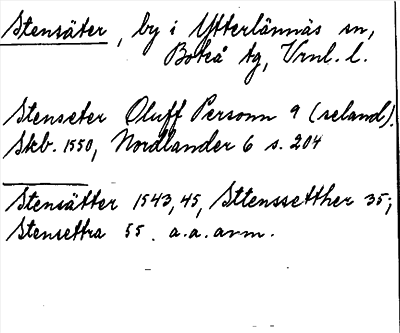 Stensäter, by i Ytterlännäs sn,
Boteå tg, Vrnl. l.
Stenseter Oluff Personn 9 (seland).
Skb. 1550, Nordlander 6 s. 204
Stensätter 1543, 45, Sttenssetther 35;
Stensettra 55. a.a. avm.